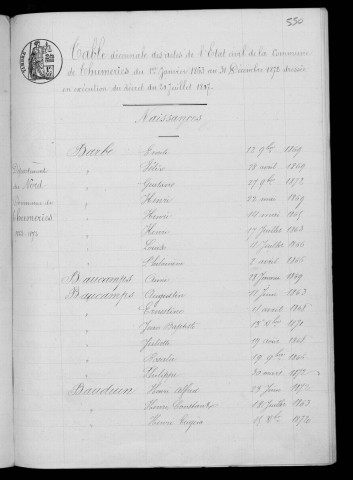 550
Table décennale des actes de l'Etat civil de la Commune
de Thumeries du 1er Janvier 1863 au 31 Décembre 1872 dressée
en exécution du décret du 20 Juillet 1807.
Naissances
Département
du Nord
Commune de
Thumeries
1863-1872
Barbe 12 9bre 1869
" 28 avril 1869
" Gustave 27 9bre 1872
" Henri 22 mai 1869
" Henri 14 mai
" Henri 17 Juillet 1863
" Louis Juillet 1866
" Philomène 2 avril
Beaucamps 18 Janvier 1869
Beaucamps Augustin 11 Juin 1863
" Ernestine avril
" Jean Baptiste 1870
" Juliette 19
" 19 9bre
" Philippe 30 mars 1872
Baudrin Henri Alfred 29 Juin 1872
" Henri Constant 18 Juillet 1863
" Henri 15 1872